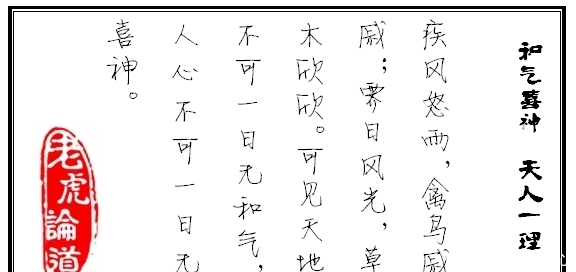 和气喜神 天人一理
疾风怒雨，禽鸟戚
戚；霁日风光，草
木欣欣。可见天地
不可一日无和气，
人心不可一日无
喜神。
老虎論道